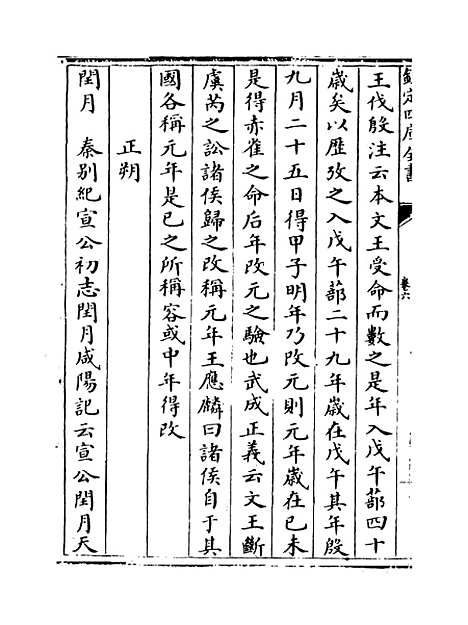 欽定四庫全書
卷六
王伐殷注云本文王受命而數之是年入戊午蔀四十
歲矣以歷攷之入戊午蔀二十九年歲在戊午其年殷
九月二十五日得甲子明年乃改元則元年歲在已未
是得赤雀之命后年改元之驗也武成正義云文王斷
虞芮之訟諸侯歸之改稱元年王應麟曰諸侯自于其
國各稱元年是已之所稱容或中年得改
正朔
閏月　秦别紀宣公初志閏月咸陽記云宣公閏月天